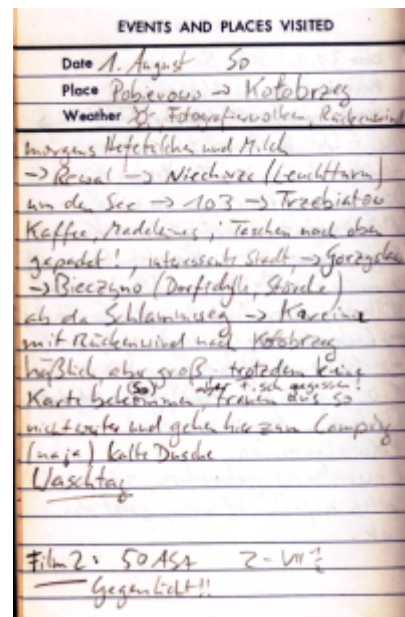 EVENTS AND PLACES VISITED
Date 1. August So
Place Pobierowo → Kołobrzeg
Weather Fotografierwolken, Rückenwind
morgens Hefeteilchen und Milch
→ Rewal → Niechorze (Leuchtturm)
um den See → 103 → Trzebiatów
Kaffee, Madeleines, Taschen nach oben
gepackt!, interessante Stadt, →
→ Bieczyno (Dorfidylle, Störche)
ab da Schlammweg → Karcino
mit Rückenwind nach Kołobrzeg
häßlich aber groß, trotzdem keine
Karte bekommen (So) aber Fisch gegessen!
trauen uns so
nicht weiter und gehen hier zum Camping
(naja) kalte Dusche
Waschtag
Film 2: 50 ASA 2-VII
Gegenlicht!!